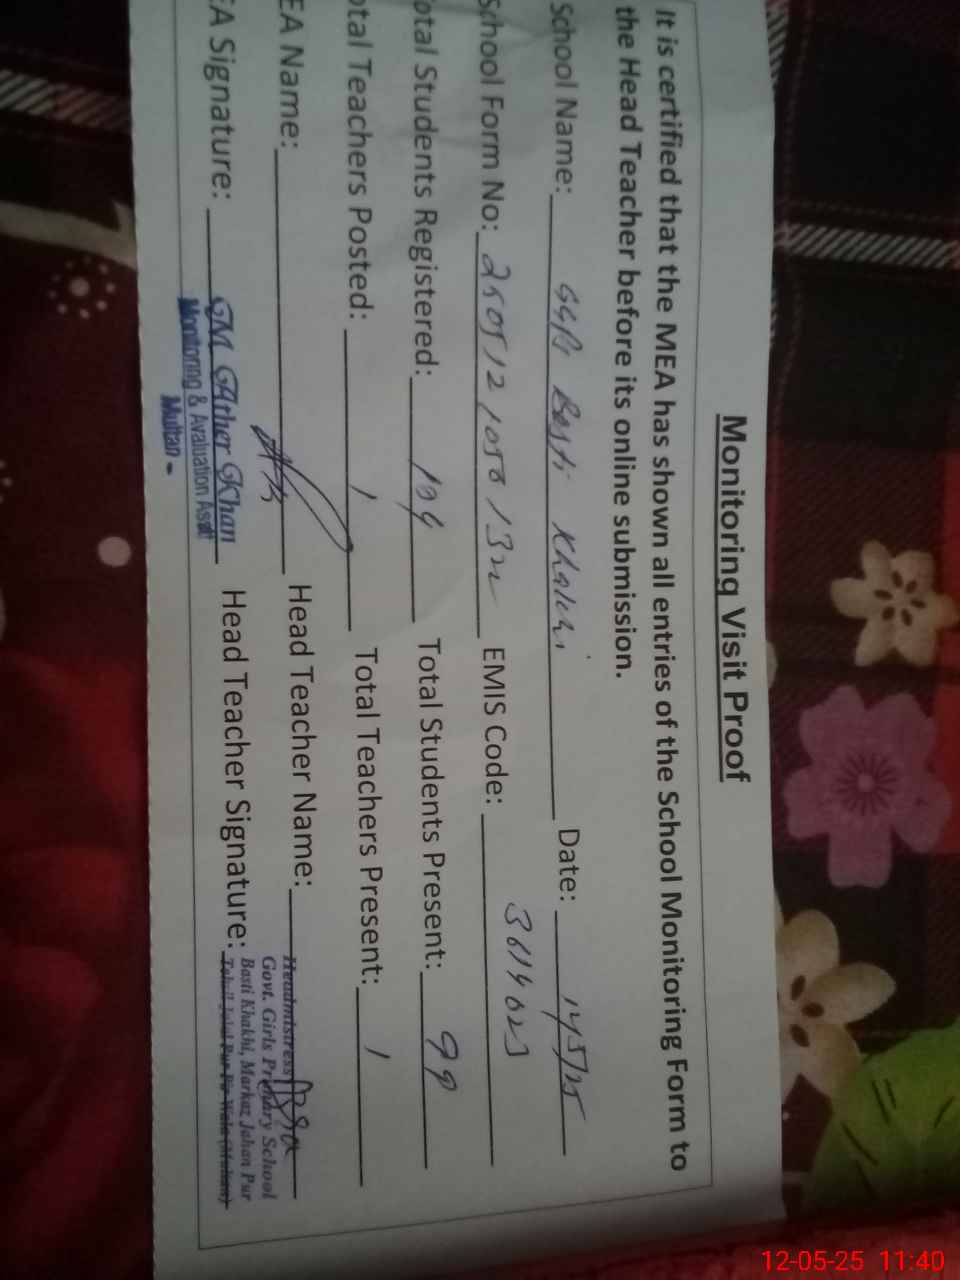 Monitoring Visit Proof
It is certified that the MEA has shown all entries of the School Monitoring Form to
the Head Teacher before its online submission.
School Name: Basti Khakhi Date:
School Form No: EMIS Code:
otal Students Registered: 104 Total Students Present: 99
otal Teachers Posted: 1 Total Teachers Present: 1
EA Name: Head Teacher Name: Headmistress
Govt. Girls Primary School
EA Signature: GM Ather Khan Head Teacher Signature: Basti Khakhi, Markaz Jahan Pur
Monitoring & Avaluation Asstt Tehsil Jalal Pur Pir Wala (Multan)
Multan -
12-05-25 11:40